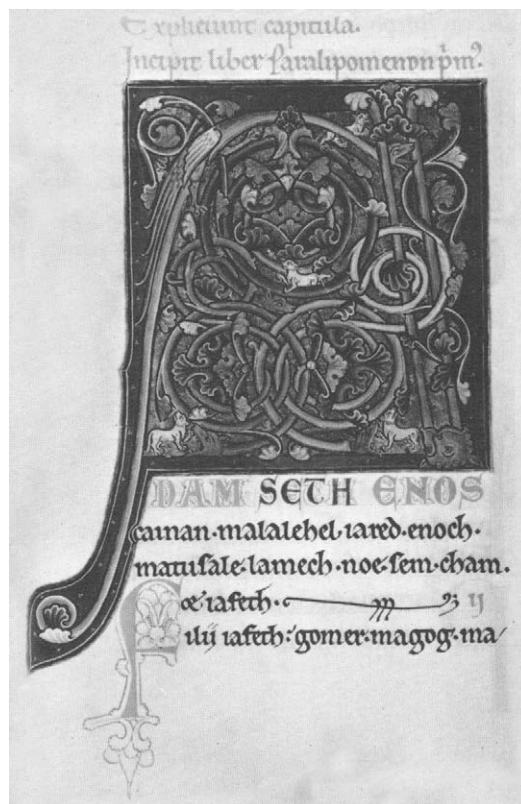 Expliciunt capitula.
Incipit liber Paralipomenon pͥmꝰ.
ADAM SETH ENOS
cainan·malalehel·iared·enoch·
matusale·lamech·noe·sem·cham·
& iafeth· ij
Filij iafeth: gomer·magog·ma/